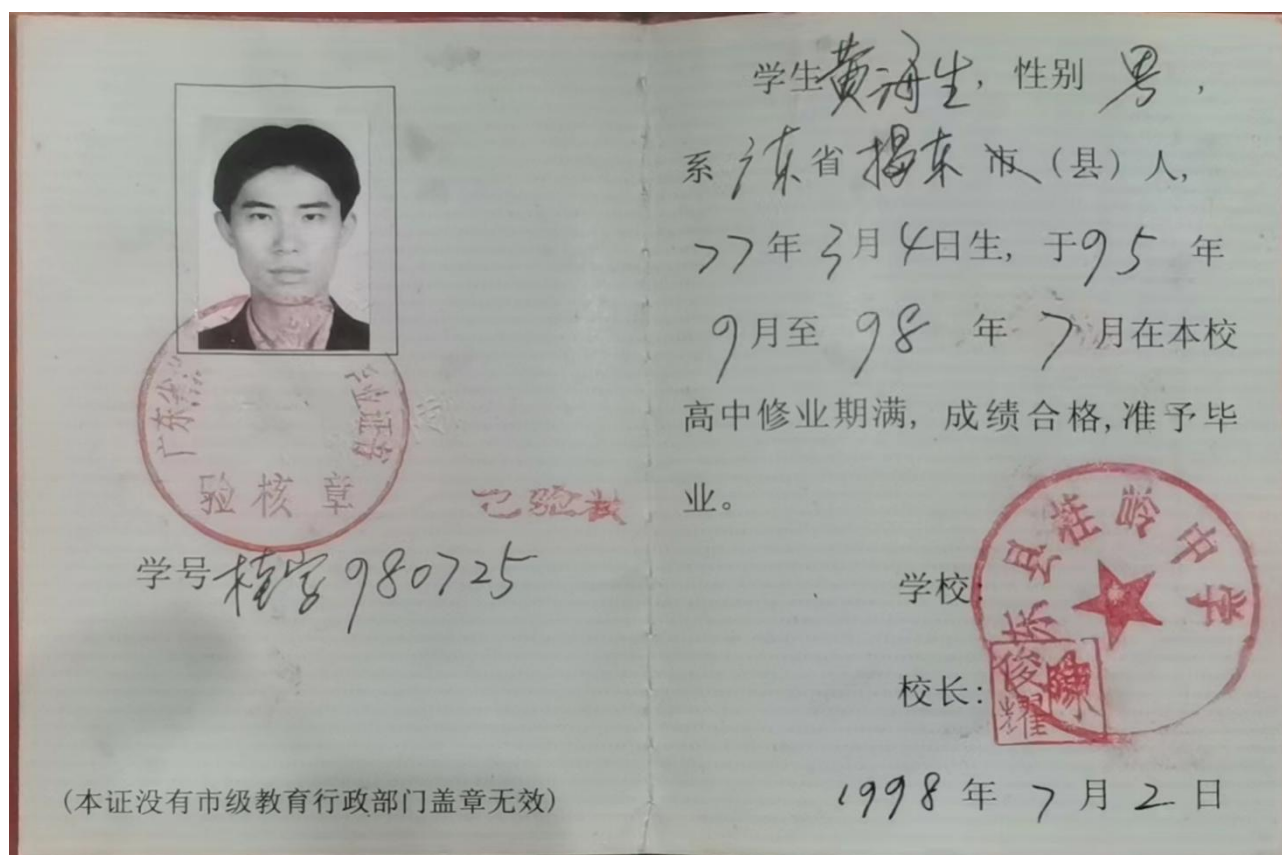 广东省
业证书
验核章
已验核
学号 桂字980725
(本证没有市级教育行政部门盖章无效)
学生 黄海生, 性别 男,
系 广东 省 揭东 市 (县) 人,
77年3月4日生, 于95年
9月至98年7月在本校
高中修业期满, 成绩合格,准予毕
业。
东县桂岭中学
学校:
校长:
陈俊耀
1998年7月2日